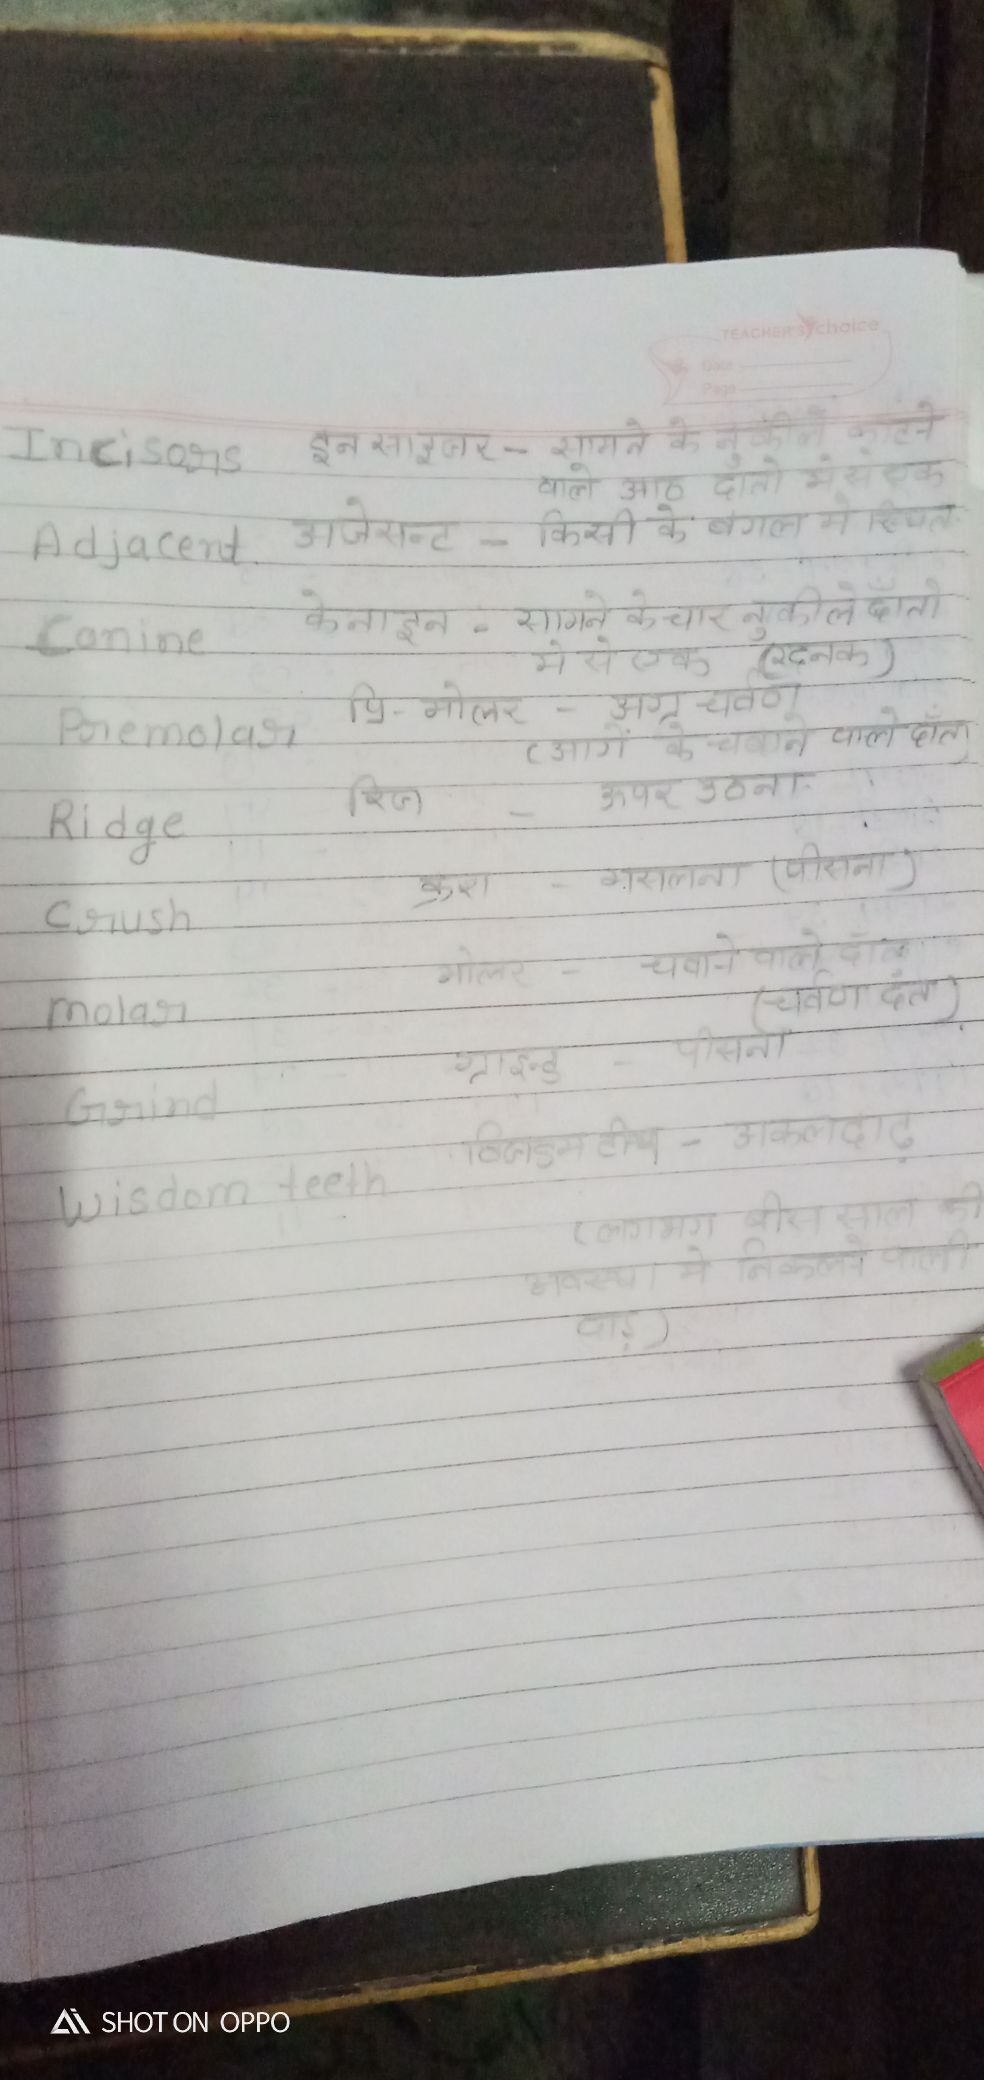 TEACHER'S choice
Date
Page
Incisors इनसाइजर - सामने के नुकीले काटने
वाले आठ दाँतो में से एक
Adjacent अजेसन्ट - किसी के बगल मे स्थित
Canine केनाइन - सामने के चार नुकीले दाँतो
मे से एक (रदनक)
Premolar प्रि-मोलर - अग्र चर्वण
(आगें के चबाने वाले दाँत)
Ridge रिज - ऊपर उठना
Crush क्रश - मसलना (पीसना)
molar मोलर - चबाने वाले दाँत
(चर्वण दंत)
Grind ग्राइन्ड - पीसना
Wisdom teeth विजडम टीथ - अकलदाढ़
(लगभग बीस साल की
अवस्था मे निकलने वाली
दाढ़)
SHOT ON OPPO